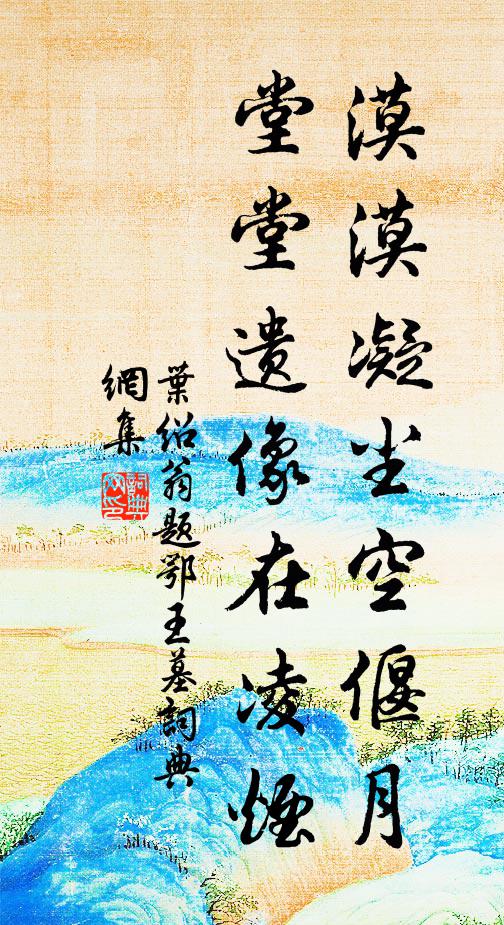 漠漠凝尘空偃月
堂堂遗像在凌烟
葉绍翁题鄂王墓詞典
網集
詞典
网印